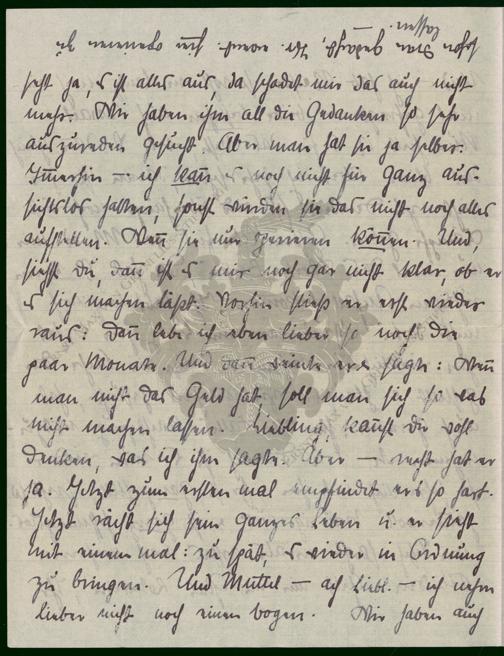 seht ja, es ist alles aus, da schadet mir das auch nicht
mehr. Wir haben ihm all die Gedanken so sehr
auszureden gesucht. Aber man hat sie ja selber.
Immerhin – ich kann es noch nicht für ganz aus-
sichtslos halten, sonst würden sie das nicht noch alles
aufstellen. Wenn sie nur operieren können. Und,
siehst du, dann ist es mir noch gar nicht klar, ob er
es sich machen läßt. Vorhin stieß er erst wieder
raus: dann lebe ich eben lieber so noch die
paar Monate. Und dann weinte er u. sagte: Wenn
man nicht das Geld hat, soll man sich so was
nicht machen lassen. Liebling, kannst dir wohl
denken, was ich ihm sagte. Aber – recht hat er
ja. Jetzt zum ersten mal empfindet er es so hart.
Jetzt rächt sich sein ganzes Leben u. er sieht
mit einem mal: zu spät, es wieder in Ordnung
zu bringen. Und Muttel – ach Liebl. – ich nehm
lieber nicht noch einen bogen. Wir haben auch
schon dran gedacht, Dr. ihn operieren zu
lassen.